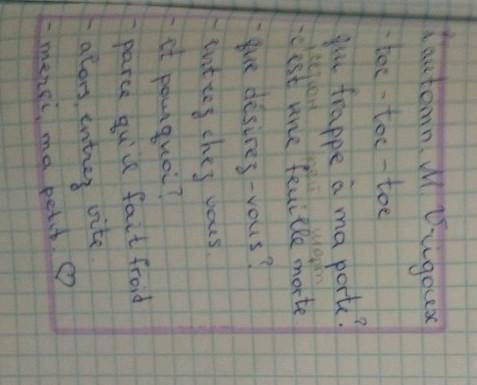 L'automn. M Vrigoux
- toc - toc - toc
qui frappe à ma porte?
- c'est une feuille morte.
- que désirez-vous?
- entrer chez vous.
- et pourquoi?
- parce qu'il fait froid
- alors, entrez vite.
- merci, ma petit ♡